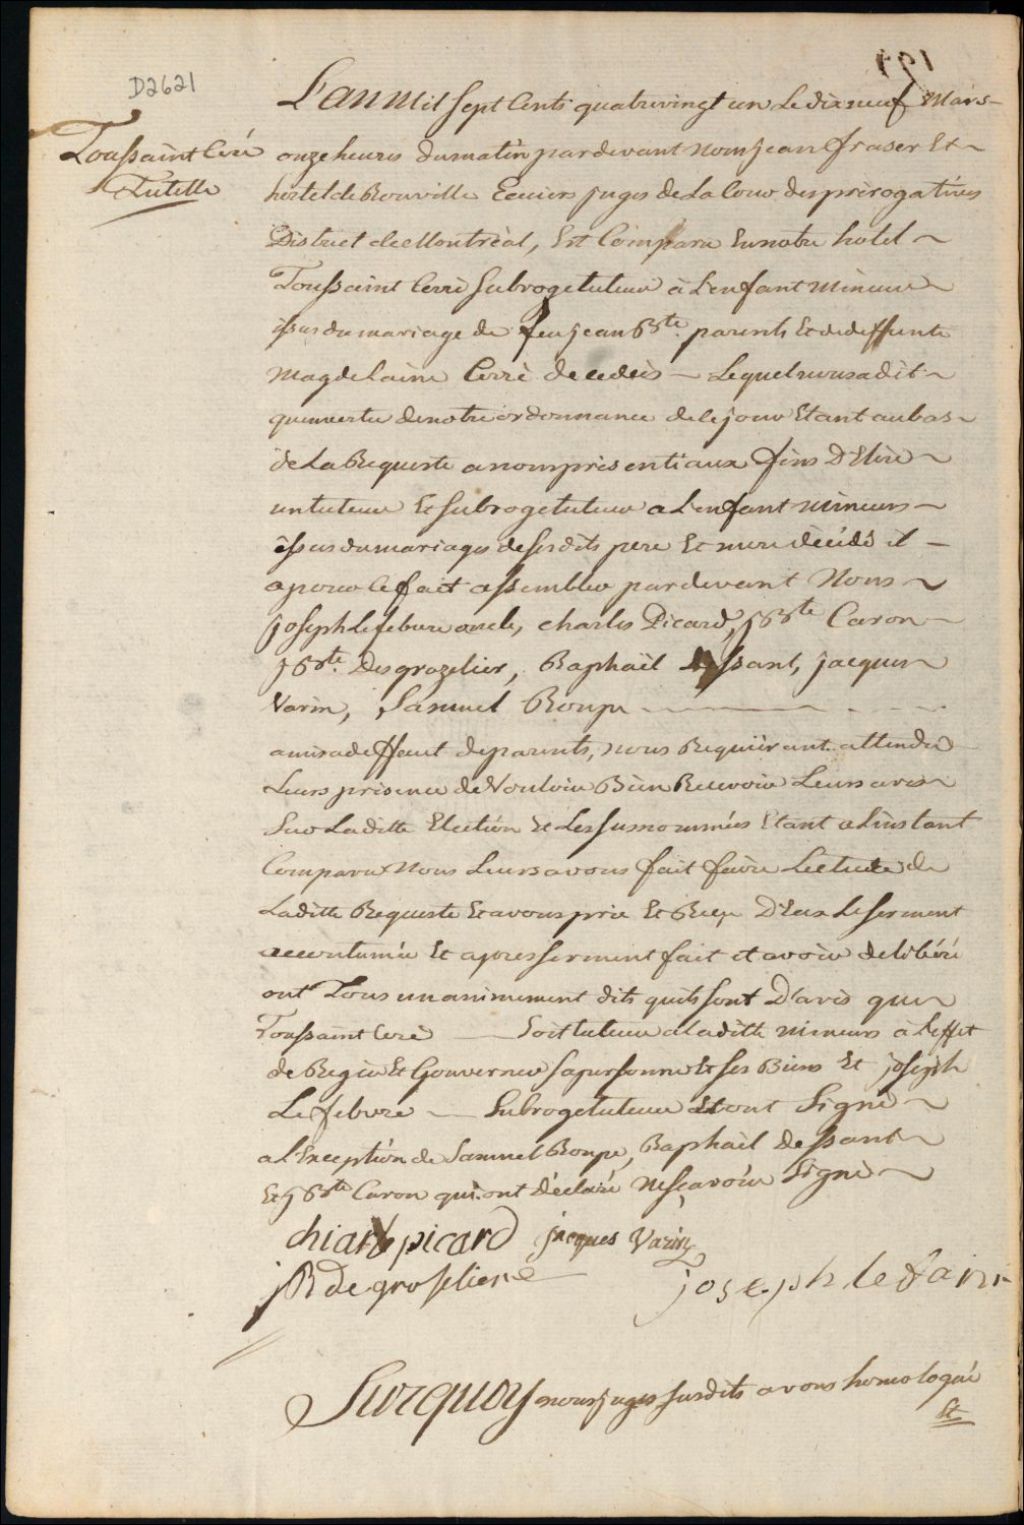 D2621
L'an Mil Sept Cents quatrevingt un Le dix neuf Mars
Toussaint Ceré
Tutelle
onze heures du matin pardevant nous jean fraser Et
hertel de Rouville Ecuiers juges de La Cour des prérogatives
District de Montréal, Est Comparu En notre hotel
Toussaint Cerré Subrogé tuteur à L'enfant Mineure
issus du mariage de feu jean Bte. parents Et de deffunte
Magdelaine Cerré decedeés - Lequel nous a dit
qu'en vertu de notre ordonnance de Ce jour Etant au bas
de La Requeste a nous présentéaux fins D'Elire
un tuteur Et Subrogé tuteur a L'enfant Mineurs
issus du mariages de Sesdits pere Et mere décédé il
a pour Ce fait assembler pardevant Nous
joseph Lefebure oncle, charles Picard, j Bte Caron
j Bte. Desgrozelier, Raphaël Dessant, jacques
Varin, Samuel Roupe
amis a deffeut de parents, nous Requiérant attendu
Leurs présence de Vouloir Bien Recevoir Leurs avis
Sur Laditte Election Et Les Susnommés Etant a L'instant
Comparu Nous Leurs avons fait faire Lecture de
Laditte Requeste Et avons pris Et Reçu D'Eux Le Serment
accoutumée Et apres Serment fait et avoir delibéré
ont Tous unanimement dits quils Sont D'avis que
Toussaint Ceré Soit tuteur a Laditte Mineurs à L'effet
de Regir Et Gouverner Sa personne Et Ses Biens Et joseph
Lefebvre Subrogé tuteur Et ont Signé
a L'Exception de Samuel Roupe, Raphaël Dessant
Et j Bte Caron qui ont déclaré ne Scavoir Signé
charle picard jacques Varin
jB de groselier joseph lefaivre
Surquoy nous juges Susdits avons homologué
Et